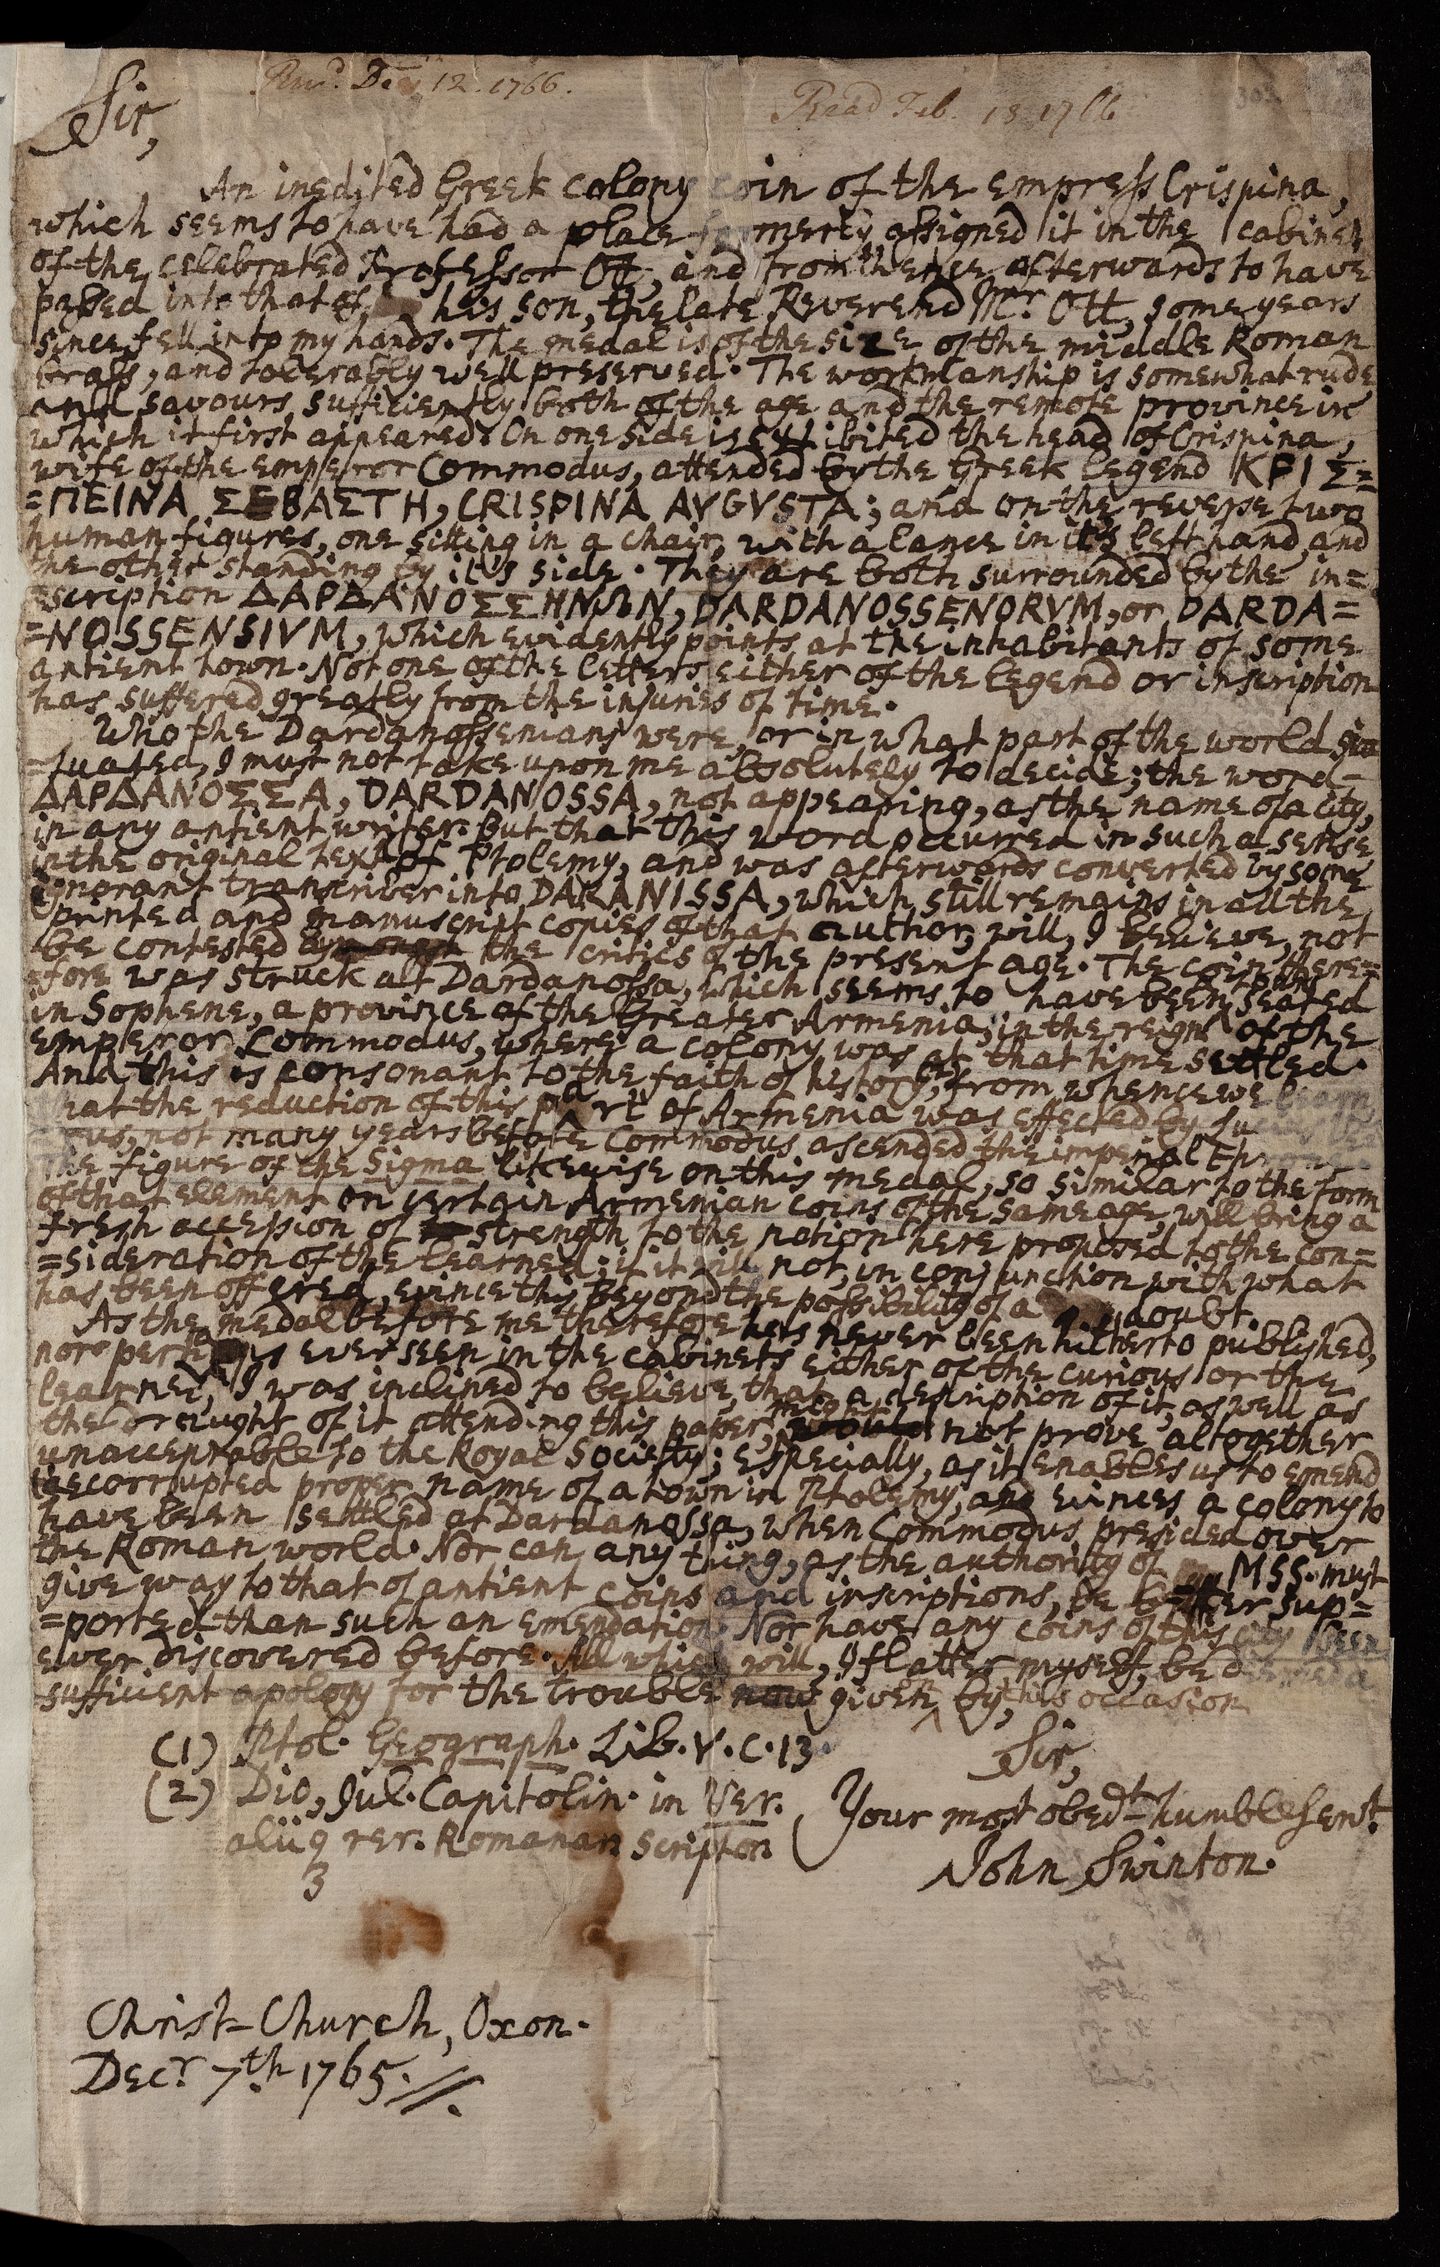 Dec. 12. 1766.
Read Feb. 13 1766
Sir,
An inedited Greek colony coin of the empress Crispina,
which seems to have had a place formerly assigned it in the cabinet
of the celebrated Professor Ott, and from thence afterwards to have
passed into that of his son, the late Reverend Mr. Ott, some years
since fell into my hands. The medal is of the size of the middle Roman
brass, and tolerably well preserved. The workmanship is somewhat rude
and savours sufficiently both of the age and the remote province in
which it first appeared. On one side is exhibited the head of Crispina,
wife of the emperor Commodus, attended by the Greek legend ΚΡΙΣ=
=ΠΕΙΝΑ ΣΕΒΑΣΤΗ, CRISPINA AVGVSTA; and on the reverse two
human figures, one sitting in a chair, with a lance in it's left hand, and
the other standing by it's side. They are both surrounded by the in=
=scription ΔΑΡΔΑΝΟΣΣΗΝΩΝ, DARDANOSSENORVM, or DARDA=
=NOSSENSIVM, which evidently points at the inhabitants of some
antient town. Not one of the letters either of the legend or inscription
has suffered greatly from the injuries of time.
Who the Dardanossenians were, or in what part of the world sit=
=tuated, I must not take upon me absolutely to decide; the word
ΔΑΡΔΑΝΟΣΣΑ, DARDANOSSA, not appearing, as the name of a city,
in any antient writer. But that this word occurred in such a sense
in the original text of Ptolemy, and was afterwards converted by some
ignorant transcriber into DARANISSA, which still remains in all the
printed and manuscript copies of that author, will, I believe, not
be contested by the critics of the present age. The coin there=
=fore was struck at Dardanossa, which seems to have been seated
in Sophene, a province of the Greater Armenia, in the reign of the
emperor Commodus, where a colony was at that time settled.
And this is consonant to the faith of history, from whence we learn
that the reduction of this part of Armenia was effected by Lucius
not many years before Commodus ascended the imperial throne.
The figure of the Sigma likewise on this medal, so similar to the form
of that element on certain Armenian coins of the same age, will bring a
fresh accession of strength to the notion here proposed to the con=
=sideration of the learned; if it will not, in conjunction with what
has been offered, evince this beyond the possibility of a doubt.
As the medal before me therefore has never been hitherto published,
nor perhaps ever seen in the cabinets either of the curious or the
learned, I was inclined to believe, that a description of it, as well as
the draught of it attending this paper, might not prove altogether
unacceptable to the Royal Society; especially, as it enables us to emend
the corrupted proper name of a town in Ptolemy, and evinces a colony to
have been settled at Dardanossa, when Commodus presided over
the Roman world. Nor can any thing, as the authority of MSS. must
give way to that of antient coins and inscriptions, be better sup=
=ported than such an emendation. Nor have any coins of this city been
ever discovered before. All which will, I flatter myself, be deemed a
sufficient apology for the trouble given by this occasion
(1) Ptol. Geograph. Lib. V. C. 13.
(2) Dio, Jul. Capitolin. in Ver.
aliiq rer. Romanar. Scriptor.
3
Sir,
Your most obedt. humble Servt.
John Swinton.
Christ-Church, Oxon.
Decr. 7th. 1765.